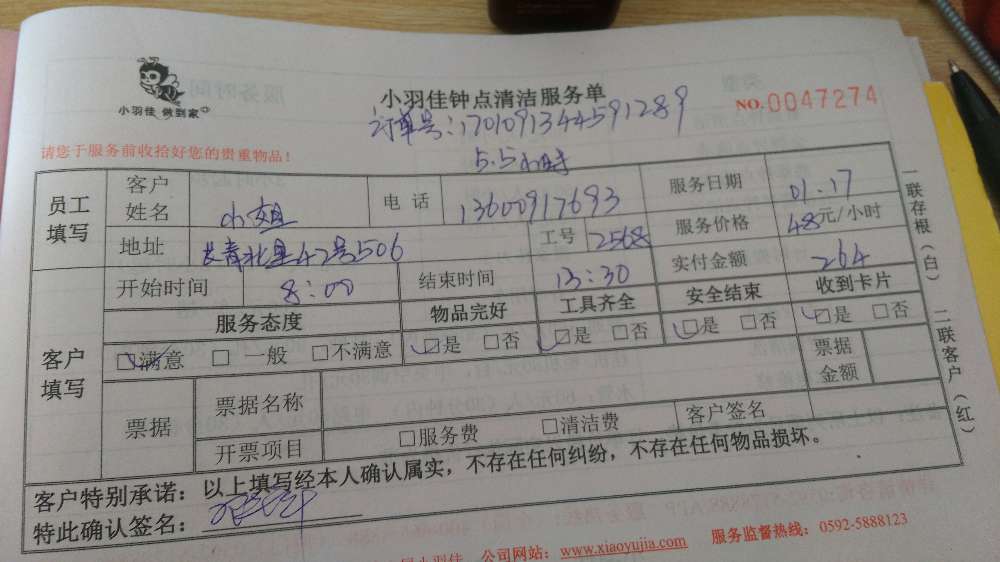 小羽佳 做到家
小羽佳钟点清洁服务单
NO.0047274
订单号:17010913445912​89
5.5小时
请您于服务前收拾好您的贵重物品!
员工填写 客户姓名 小姐 电话 13600917693 服务日期 01.17
地址 长青北里42号506 工号 2568 服务价格 48元/小时
开始时间 8:00 结束时间 13:30 实付金额 264
客户填写 服务态度 物品完好 工具齐全 安全结束 收到卡片
☑满意 □一般 □不满意 ☑是 □否 ☑是 □否 ☑是 □否 ☑是 □否
票据 票据名称 票据金额
开票项目 □服务费 □清洁费 客户签名
客户特别承诺:以上填写经本人确认属实,不存在任何纠纷,不存在任何物品损坏。
特此确认签名:
小羽佳 公司网站:www.xiaoyujia.com 服务监督热线:0592-5888123
一联存根(白) 二联客户(红)